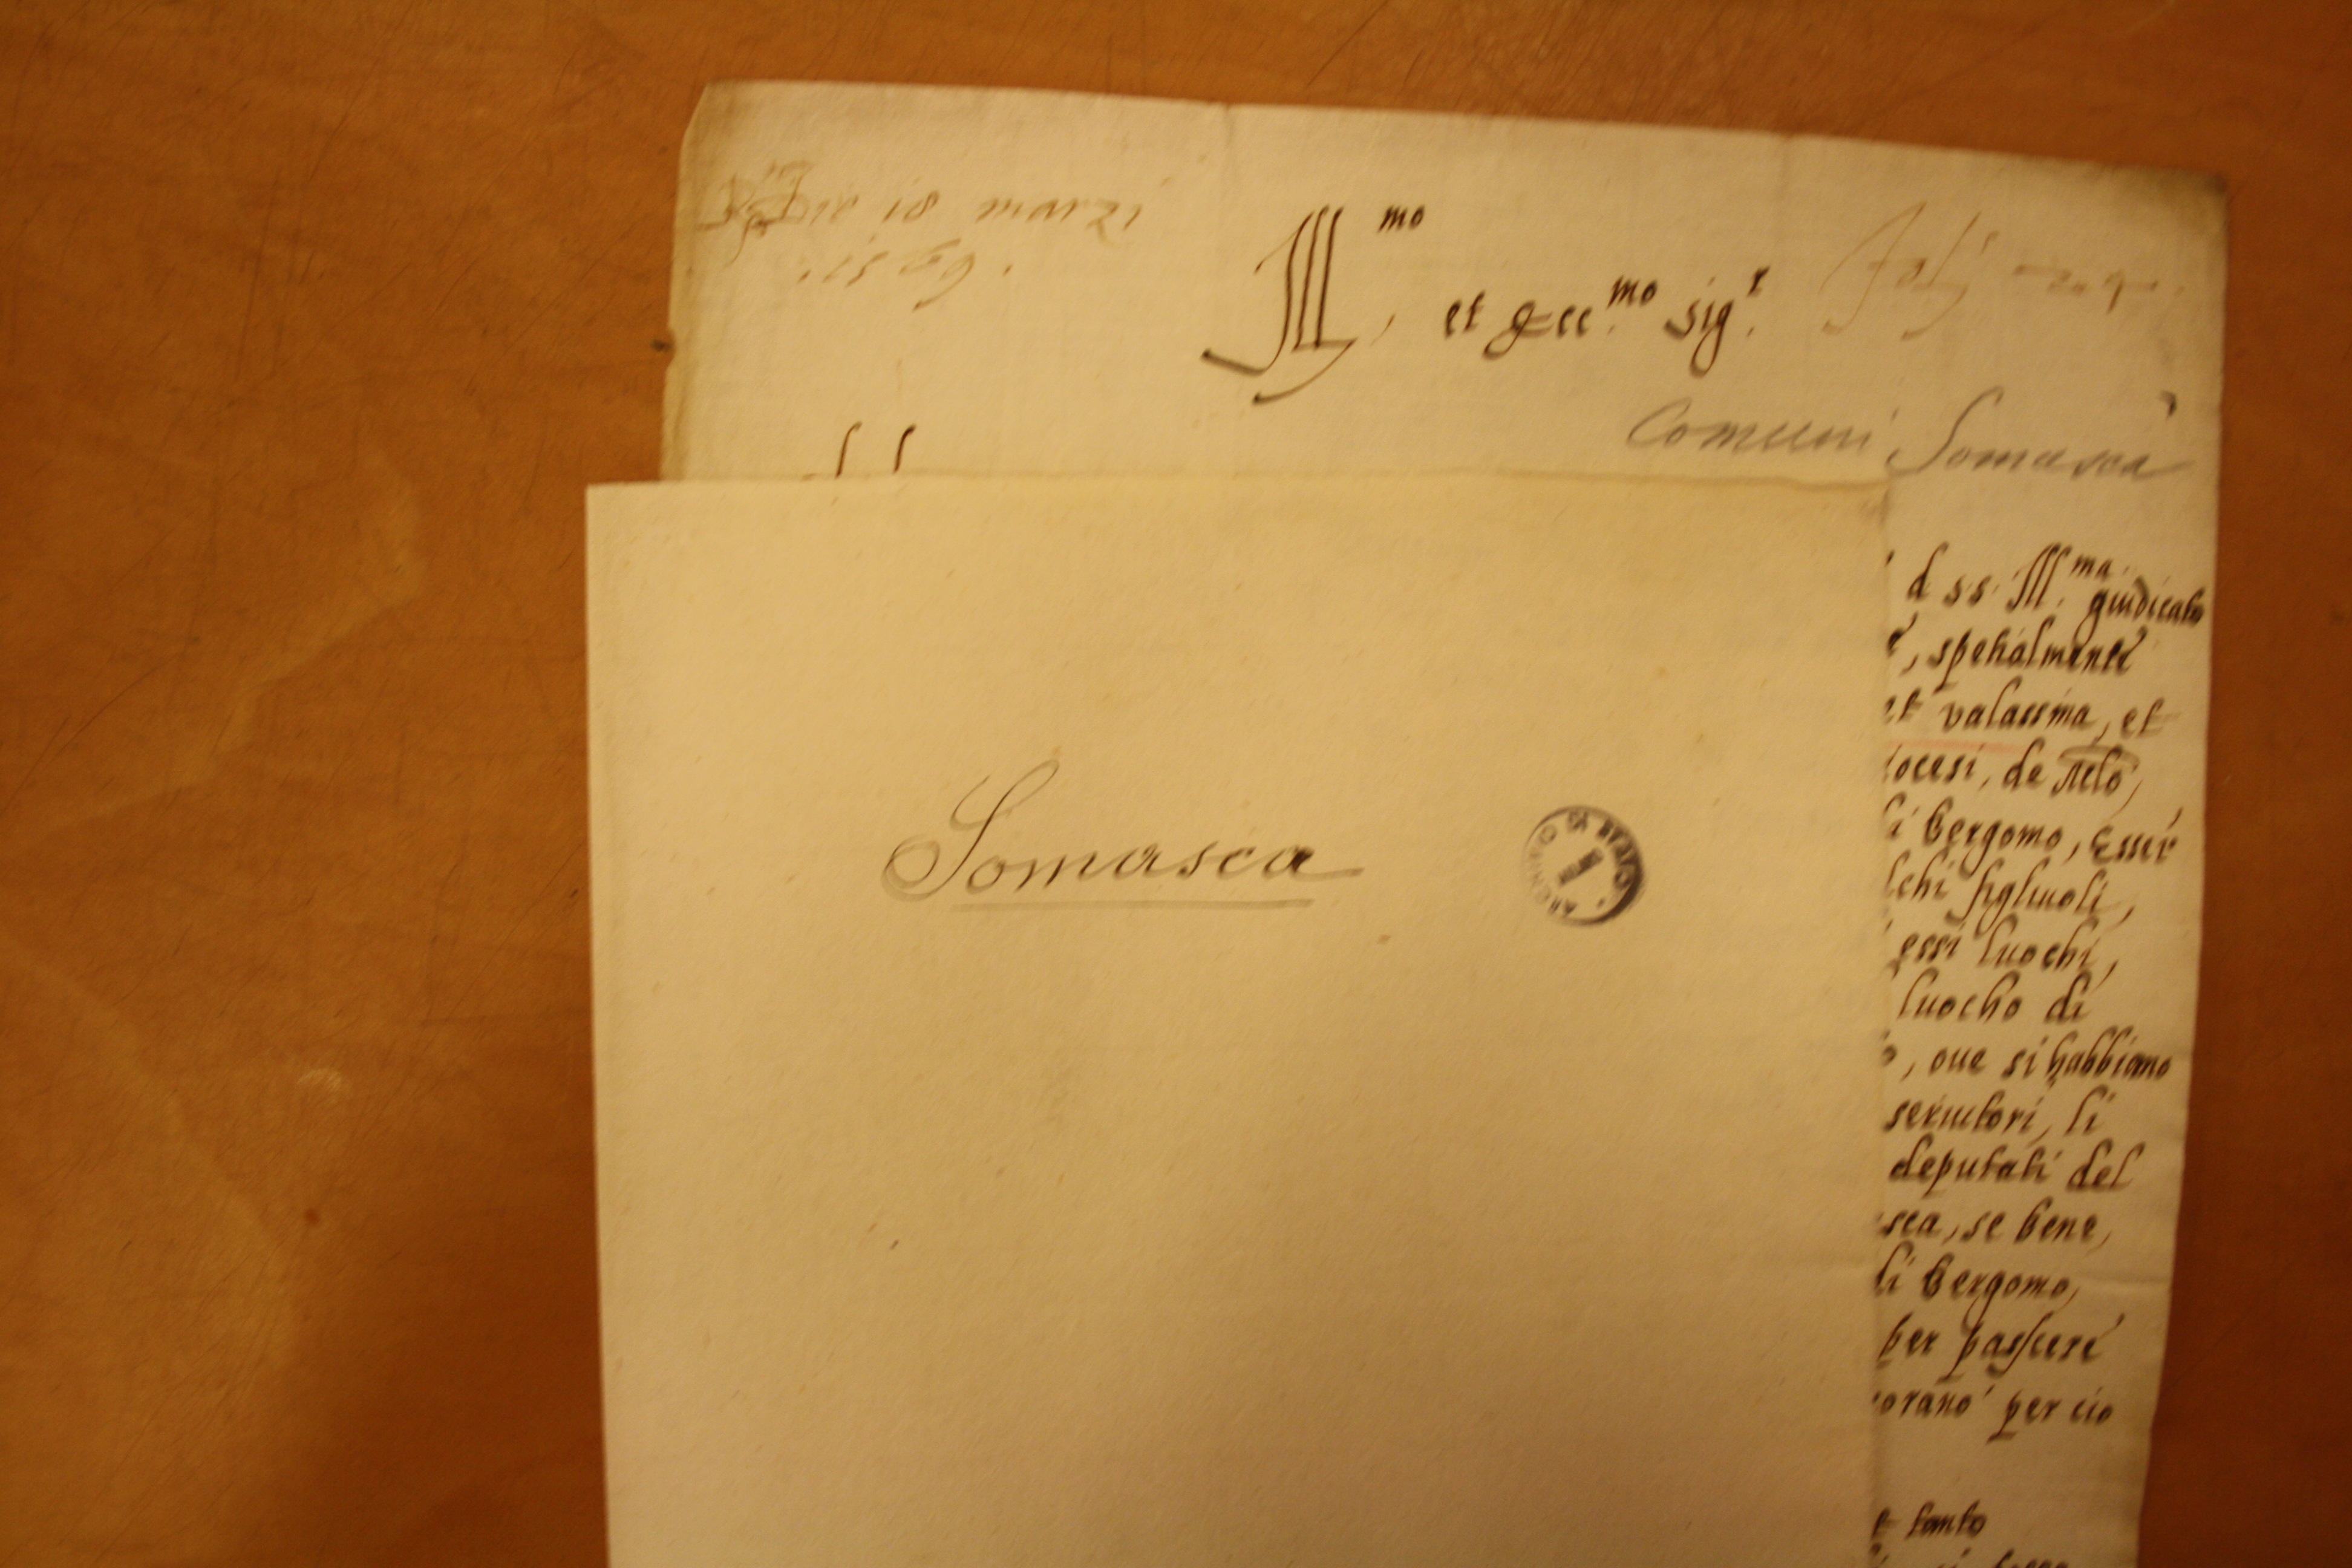 Die 18 marzi
Ill.mo et Ecc.mo sig.r
Comuni Somasca
d ss. Ill.ma giudicato
, spetialmente
et valassina, et
iocesi, de
li bergomo, esser
lchi figliuoli,
essi luochi,
luocho di
, oue si habbiamo
seruitori, li
deputati del
sca, se bene,
li bergomo,
per passcere
orano per cio
et tanto
Somasca
ARCHIVIO DI STATO